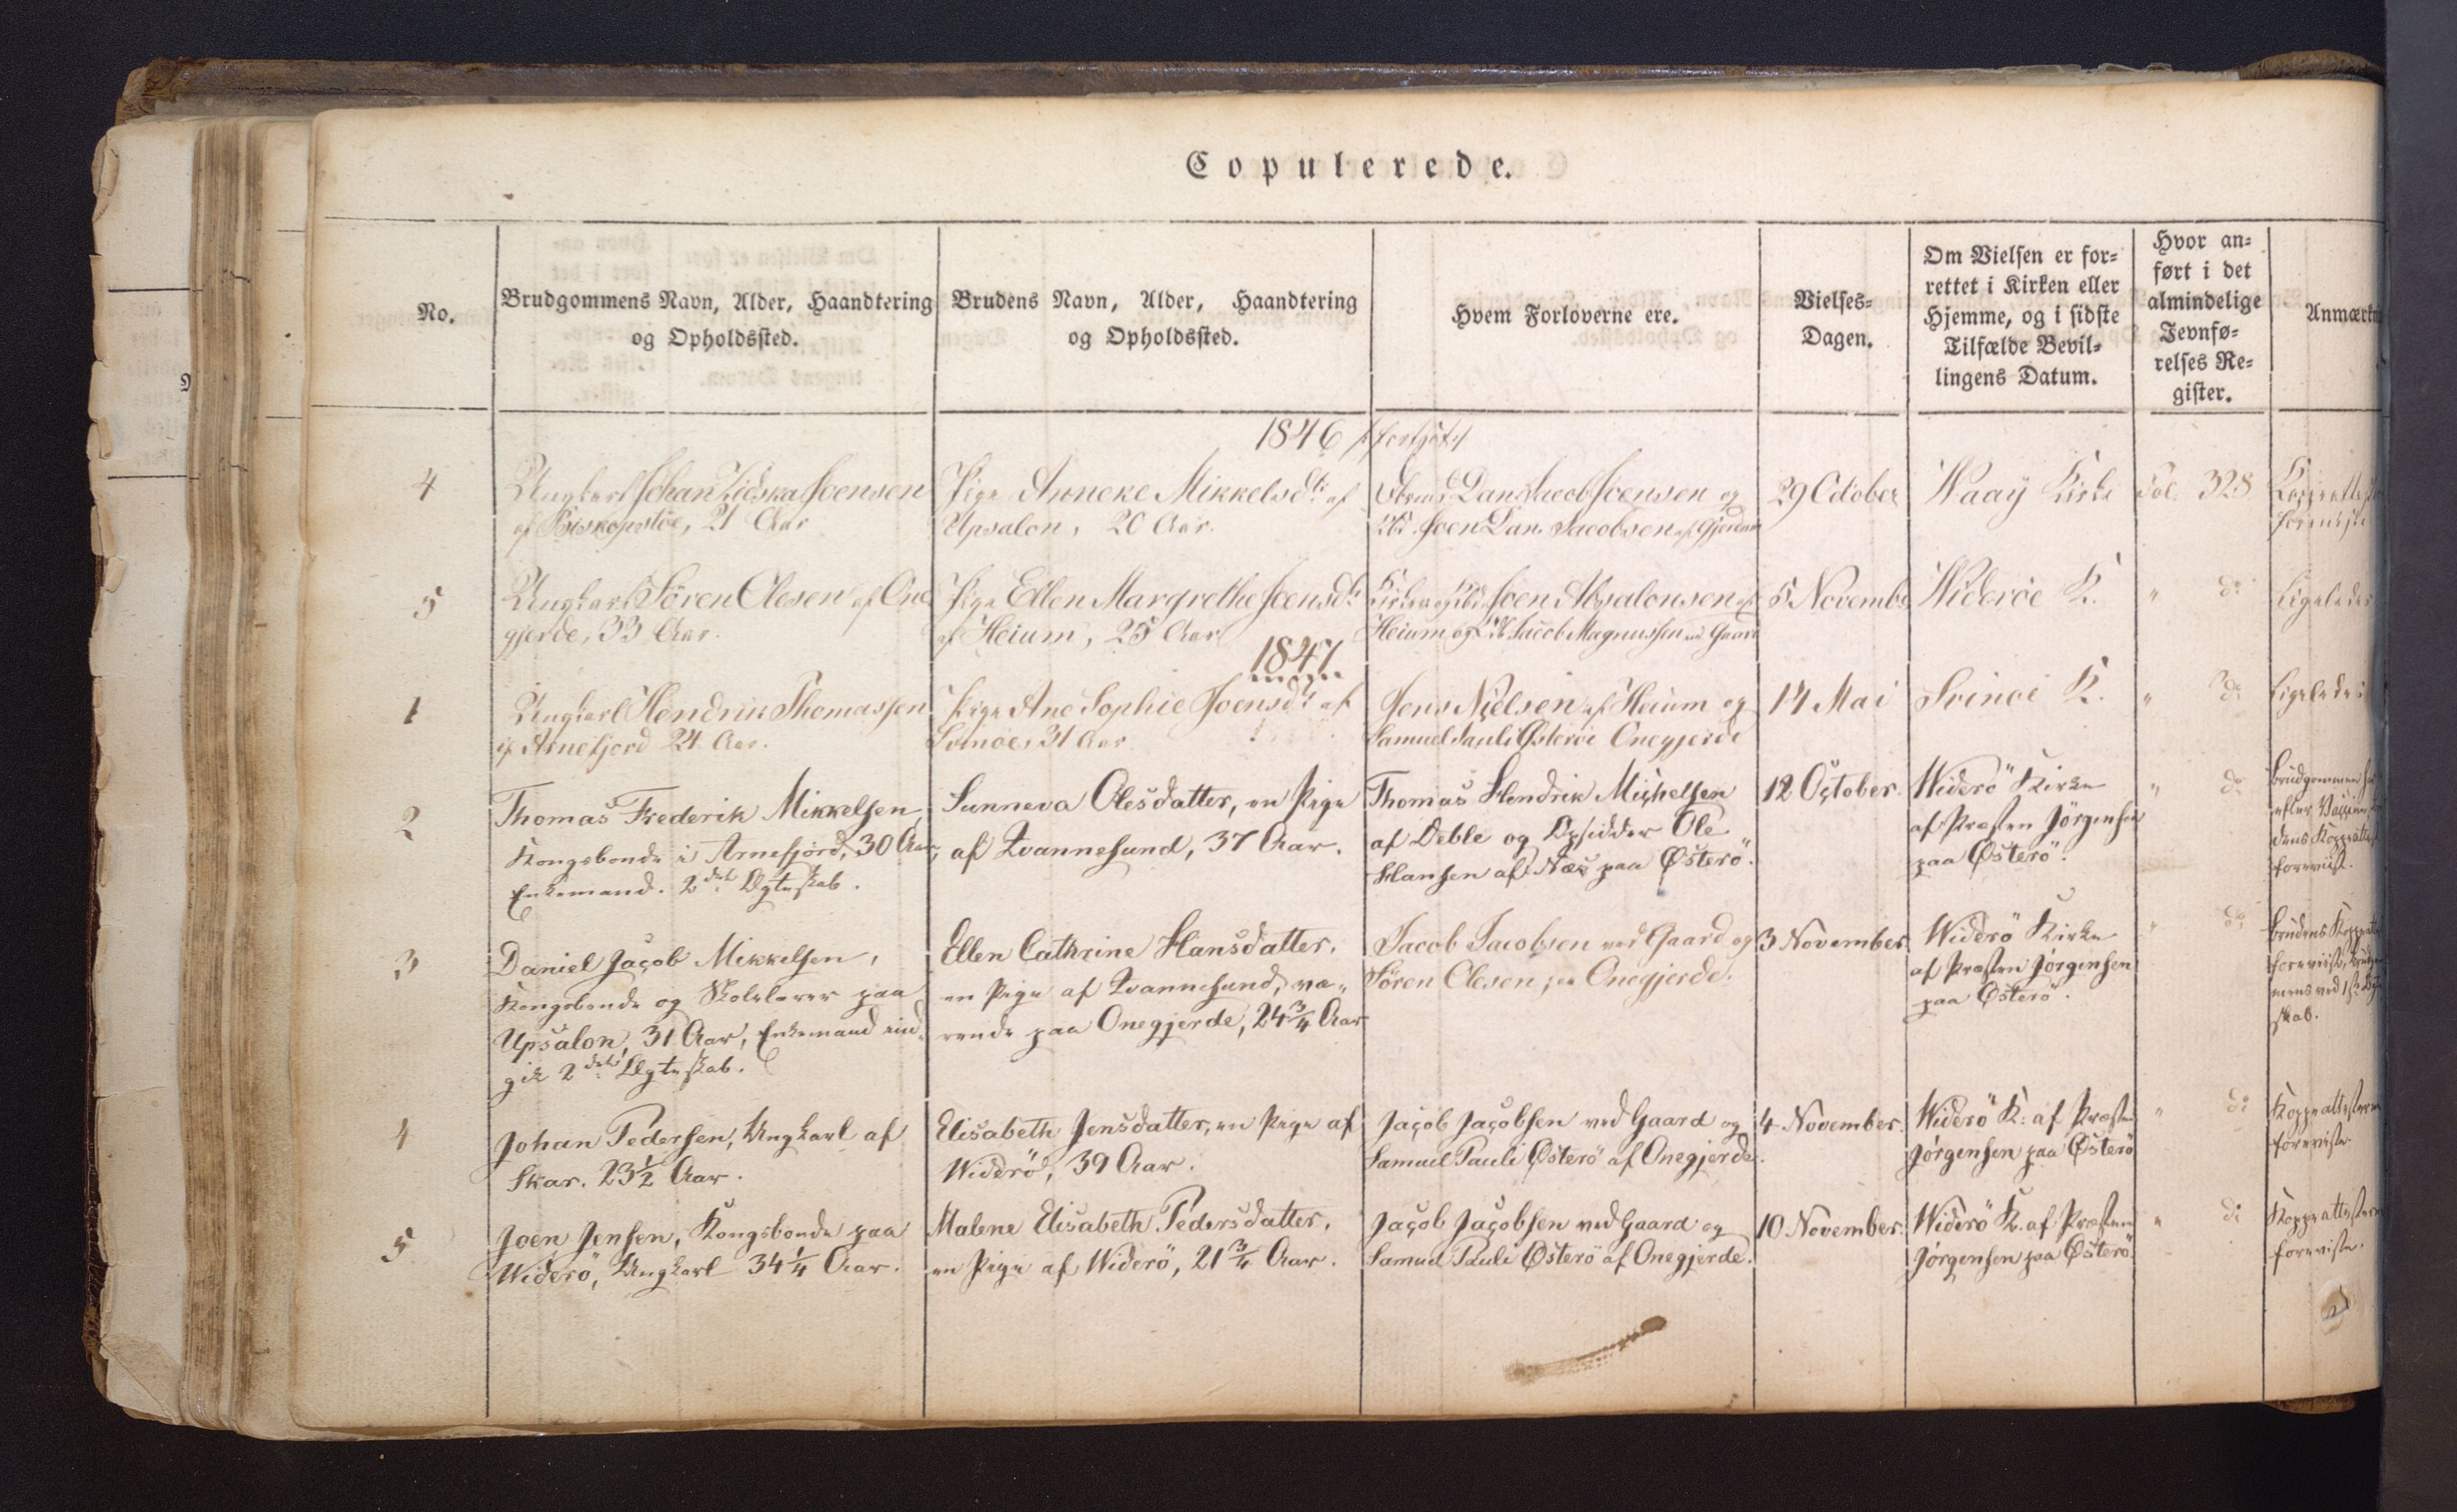 Copulerede.
No.
Brudgommens Navn, Alder, Haandtering
og Opholdssted.
Brudens Navn, Alder, Haandtering
og Opholdssted.
Hvem Forloverne ere.
Vielses-
Dagen.
Om Vielsen er for-
rettet i Kirken eller
Hjemme, og i sidste
Tilfælde Bevil-
lingens Datum.
Hvor an-
ført i det
almindelige
Jevnfø-
relses Re-
gister.
Anmærk
1846
4
Ungkarl Johan Joensen
af 21 Aar
Pige Anneke Mikkelsdtr af
Upsalon, 20 Aar.
Danj Jacob Joensen og
Joen Dan. Jacobsen af
29 October
Waaÿ Kirke
Fol. 328
5
Ungkarl Sören Olesen af One
gjerde, 33 Aar.
Pige Ellen Margrethe Joensdtr
af Heium, 25 Aar
Joen Absalonsen af
Heium og Jacob Magnussen ved Gaard
5 Novemb
Wideröe K.
" do
Ligeledes
1847
1
Ungkarl Hendrik Thomassen
af Arnefjord 24 Aar.
Pige Ane Sophie Joensdtr af
Svinöe, 31 Aar
Jens Nielsen af Heium og
Samuel Pauli Østeröe Onegjerde
14 Mai
Svinöe K.
" do
Ligeledes
2
Thomas Frederik Mikkelsen,
Kongsbonde i Arnefjord, 30 Aar,
Enkemand. 2det Ægteskab.
Sunneva Olesdatter, en Pige
af Qvannesund, 37 Aar.
Thomas Hendrik Michelsen
af Deble og Opsidder Ole
Hansen af Næs paa Østerö.
12 October.
Widerö Kirke
af Præsten Jörgensen
paa Østerö.
" do
Brudgommen
efter
dens Koppeatte
foreviist.
3
Daniel Jacob Mikkelsen,
Kongsbonde og Skolelærer paa
Upsalon, 31 Aar, Enkemand ind-
gik 2det Ægteskab.
Ellen Cathrine Hansdatter,
en Pige af Qvannesund, væ-
rende paa Onegjerde, 24 3/4 Aar
Jacob Jacobsen ved Gaard og
Sören Olesen paa Onegjerde.
3 November.
Widerö Kirke
af Præsten Jörgensen
paa Østerö.
" do
Brudens Koppeatte
foreviist,
mens ved 1ste Ægte
skab.
4
Johan Pedersen, Ungkarl af
Skar. 23 1/2 Aar.
Elisabeth Jensdatter, en Pige af
Widerö, 39 Aar.
Jacob Jacobsen ved Gaard og
Samuel Pauli Østerö af Onegjerde.
4 November.
Widerö K: af Præsten
Jörgensen paa Østerö
" do
Koppeattesterne
foreviste
5
Joen Jensen, Kongsbonde paa
Widerö, Ungkarl 34 1/4 Aar.
Malene Elisabeth Pedersdatter,
en Pige af Widerö, 21 3/4 Aar.
Jacob Jacobsen ved Gaard og
Samuel Pauli Østerö af Onegjerde.
10 November.
Widerö K. af Præsten
Jörgensen paa Østerö
" do
Koppeattesterne
foreviste.